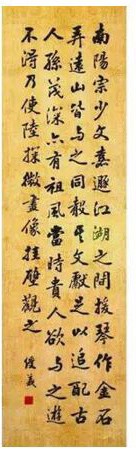 南陽宗少文嘉遯江湖之間援琴作金石
弄遠山皆與之同聲其文獻足以追配古
人孫茂深亦有祖風當時貴人欲與之遊
不得乃使陸探微畫像挂壁觀之